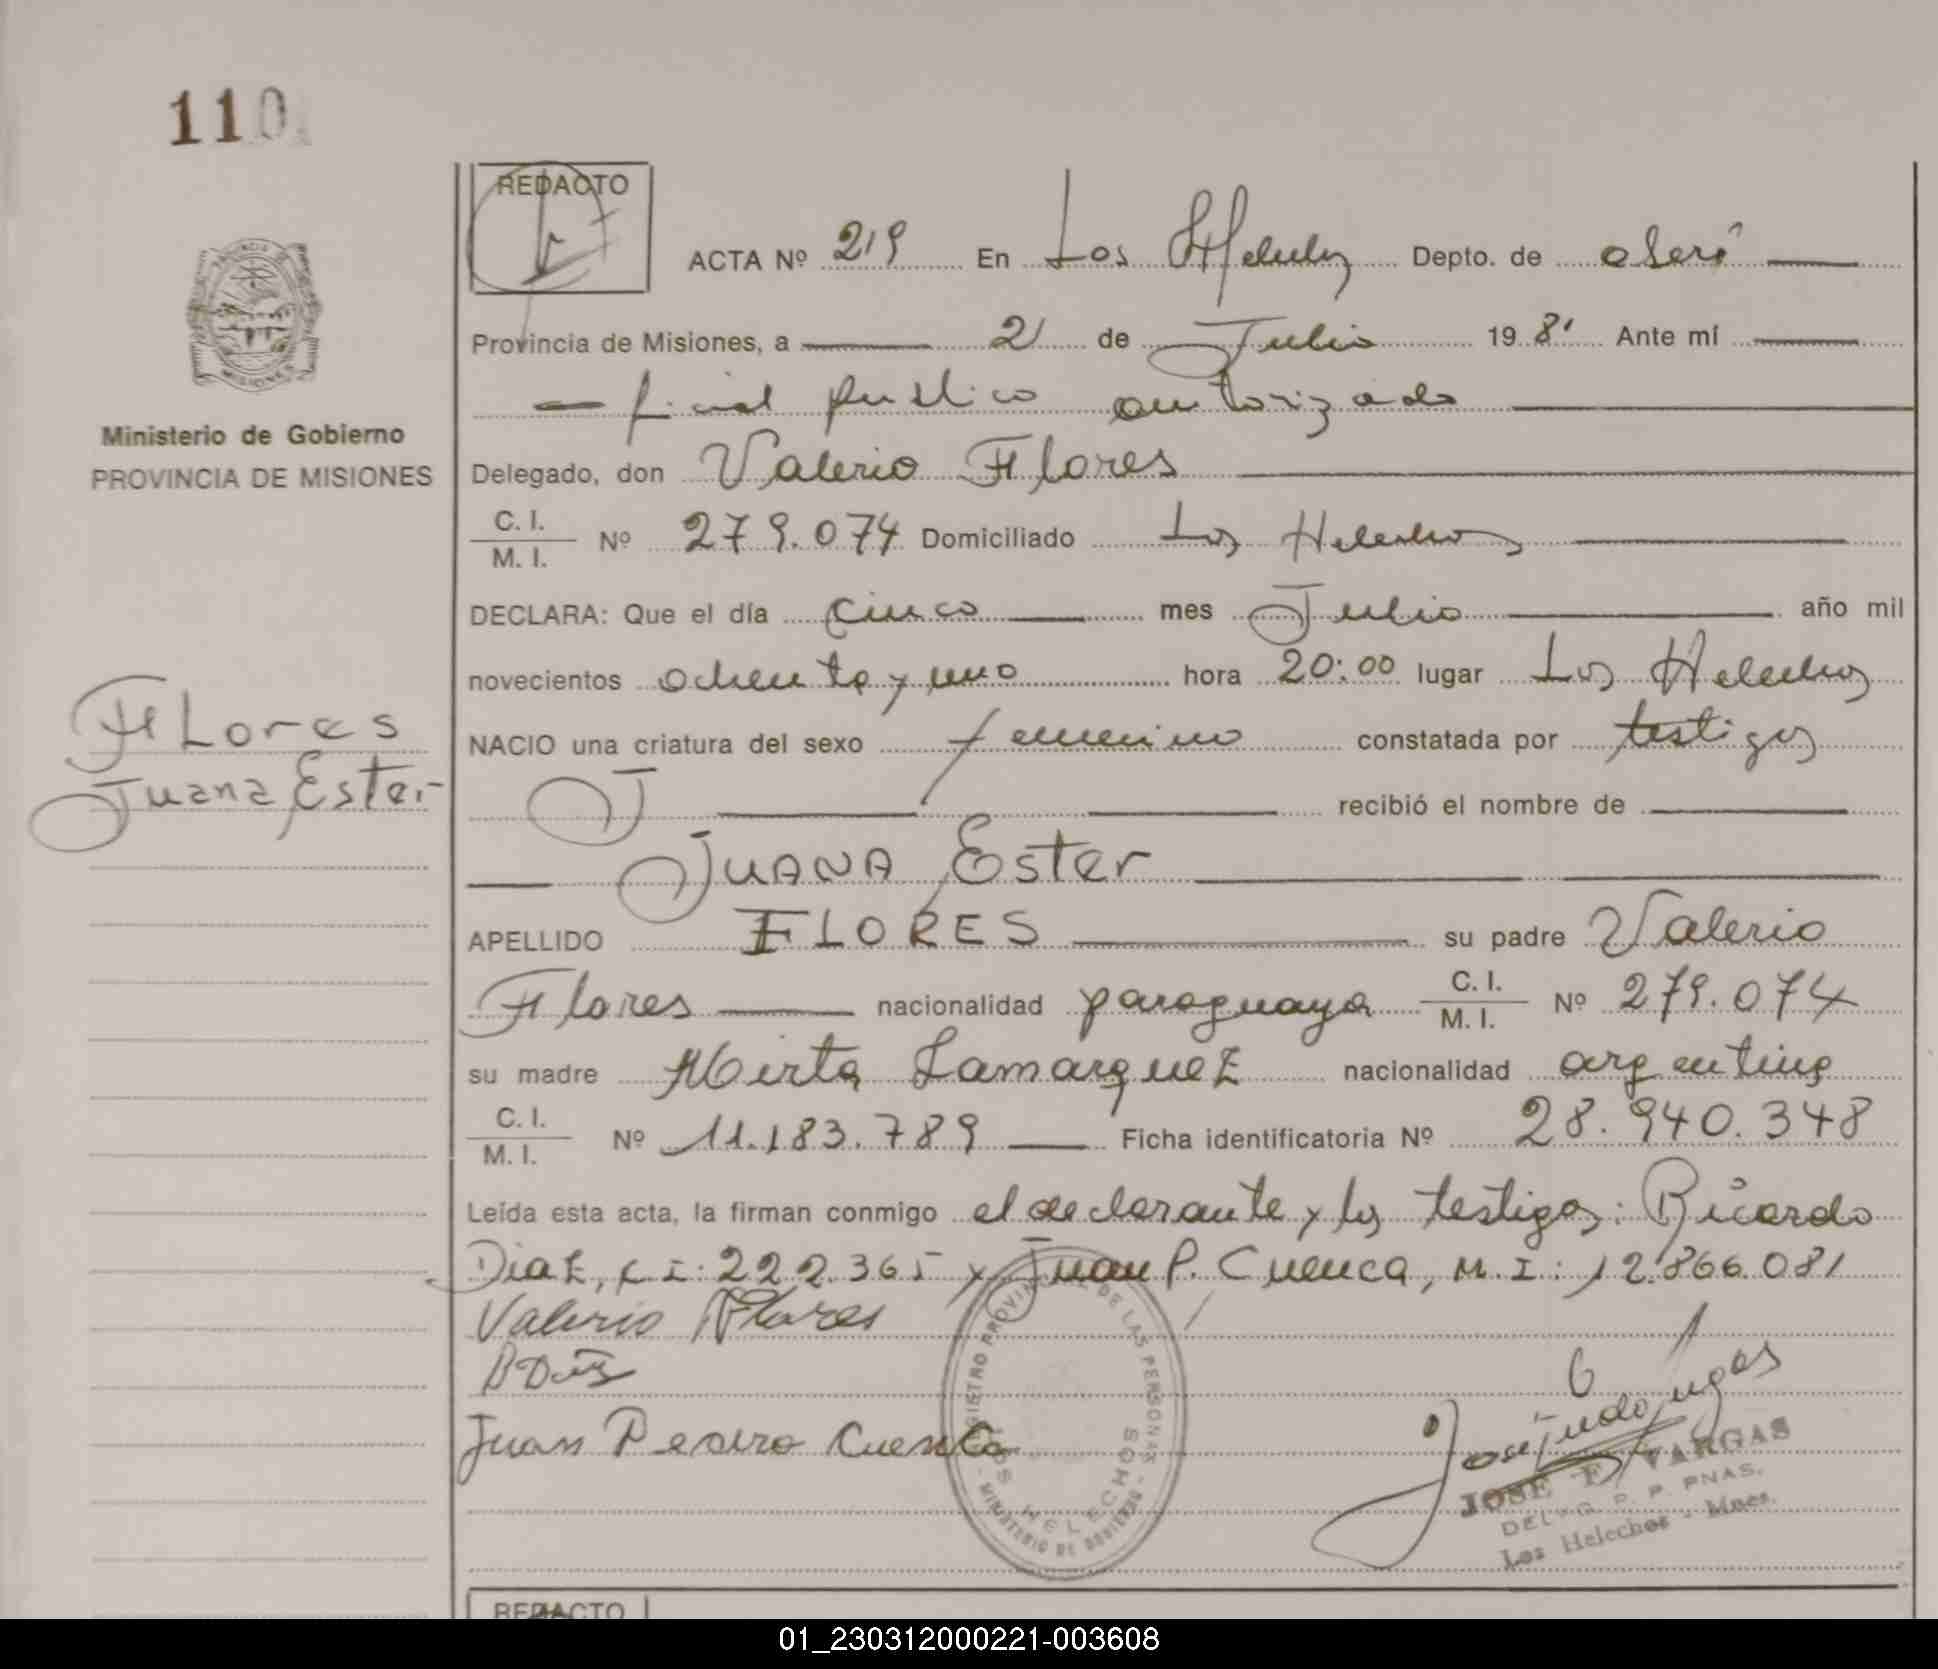 110
REDACTO
ACTA Nº 219 En Los Helechos Depto. de oberá
Provincia de Misiones, a 21 de Julio 1981 Ante mí
oficial publico autorizado
Ministerio de Gobierno
PROVINCIA DE MISIONES
Delegado, don Valerio Flores
C. I.
M. I. Nº 279.074 Domiciliado Los Helechos
DECLARA: Que el día cinco mes Julio año mil
novecientos ochenta y uno hora 20:00 lugar Los Helechos
Flores
Juana Ester
NACIO una criatura del sexo femenino constatada por testigos
recibió el nombre de
JUANA Ester
APELLIDO FLORES su padre Valerio
Flores nacionalidad paraguaya C. I.
M. I. Nº 279.074
su madre Mirta Lamarquez nacionalidad argentina
C. I.
M. I. Nº 11.183.789 Ficha identificatoria Nº 28.940.348
Leída esta acta, la firman conmigo el declarante y los testigos: Ricardo
Diaz, C.I. 222.365 y Juan P. Cuenca, M.I: 12.866.081
Valerio Flores
R Diaz
Juan Pedro Cuenca
REGISTRO PROVINCIAL DE LAS PERSONAS
LOS HELECHOS
MINISTERIO DE GOBIERNO
JOSE F. VARGAS
DELEG. R. P. PNAS.
Los Helechos - Mnes.
REDACTO
01_230312000221-003608